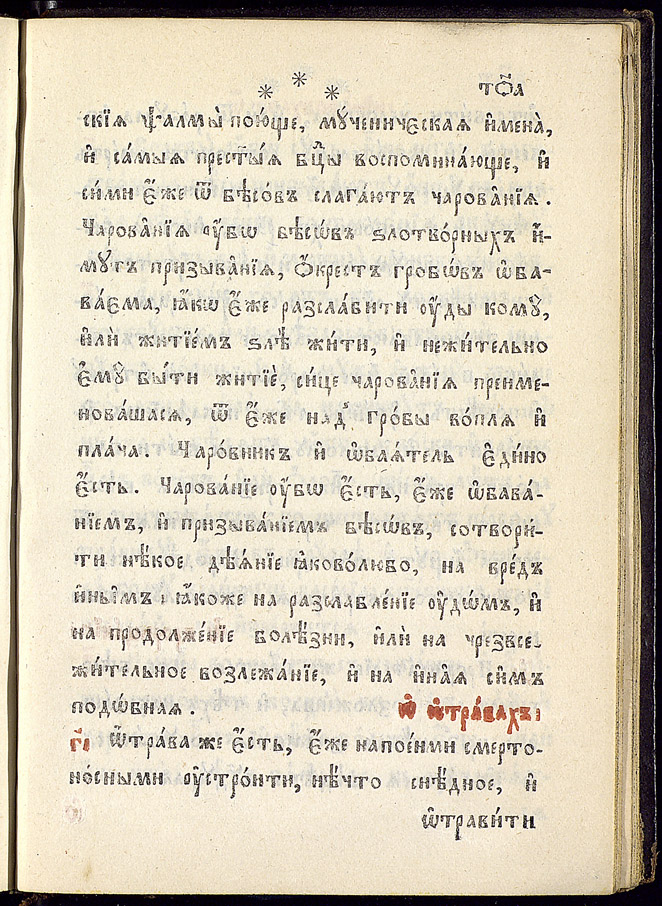 * * * то҃а
скі́ѧ ѱалмы̀ пою́ще, мꙋ́ченическаѧ и҆мена̀,
и҆ са́мыѧ прест҃ы́ѧ бц҃ы воспомина́юще, и҆
си́ми є҆́же ѿ бѣсо́въ слага́ютъ чарова́нїѧ.
Чарова́нїѧ ᲂу҆́бѡ бѣсѡ́въ ѕлотво́рныхъ и҆́-
мꙋтъ призыва́нїѧ, ѻ҆́крестъ гробѡ́въ ѡ҆ба-
ва́єма, ꙗ҆́кѡ є҆́же разсла́бити ᲂу҆́ды комꙋ̀,
и҆лѝ житїе́мъ ѕлѣ̀ жи́ти, и҆ нежи́тельно
є҆мꙋ̀ бы́ти житїѐ, си́це чарова́нїѧ преиме-
нова́шасѧ, ѿ є҆́же над̾ гро́бы во́плѧ и҆
пла́ча. Чаро́вникъ и҆ ѡ҆баѧ́тель є҆ди́но
є҆́сть. Чарова́нїе ᲂу҆́бѡ є҆́сть, є҆́же ѡ҆бава́-
нїемъ, и҆ призыва́нїемъ бѣсѡ́въ, сотвори́-
ти нѣ́кое дѣѧ́нїе ꙗ҆ково́любо, на вре́дъ
и҆ны̑мъ: ꙗ҆́коже на разслабле́нїе ᲂу҆дѡ́мъ, и҆
на продолже́нїе болѣ́зни, и҆лѝ на чрезвсе-
жи́тельное возлежа́нїе, и҆ на и҆на̑ѧ си̑мъ
подѡ́бнаѧ. Ѡ҆ ѡ҆тра́вахъ:
г҃і Ѿра́ва же є҆́сть, є҆́же напое́ними смерто-
но́сными ᲂу҆стро́ити, нѣ́что снѣ́дное, и҆
ѡ҆трави́ти